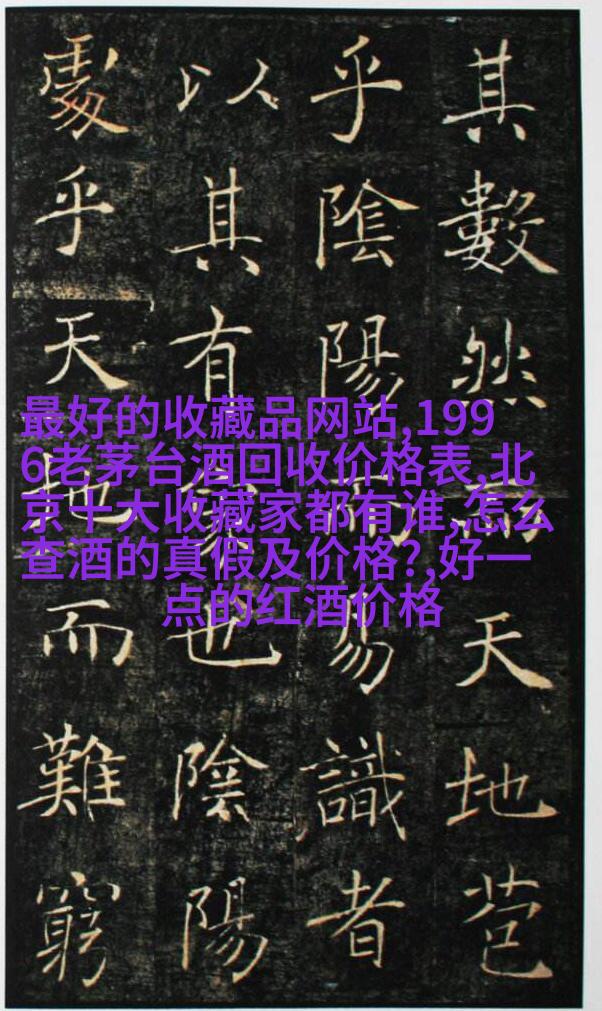 其數然而天地苞
乎陰陽而易識者
以其有象也陰陽
處乎天地而難窮
最好的收藏品网站,199
6老茅台酒回收价格表,北
京十大收藏家都有谁,怎么
查酒的真假及价格?,好一
点的红酒价格